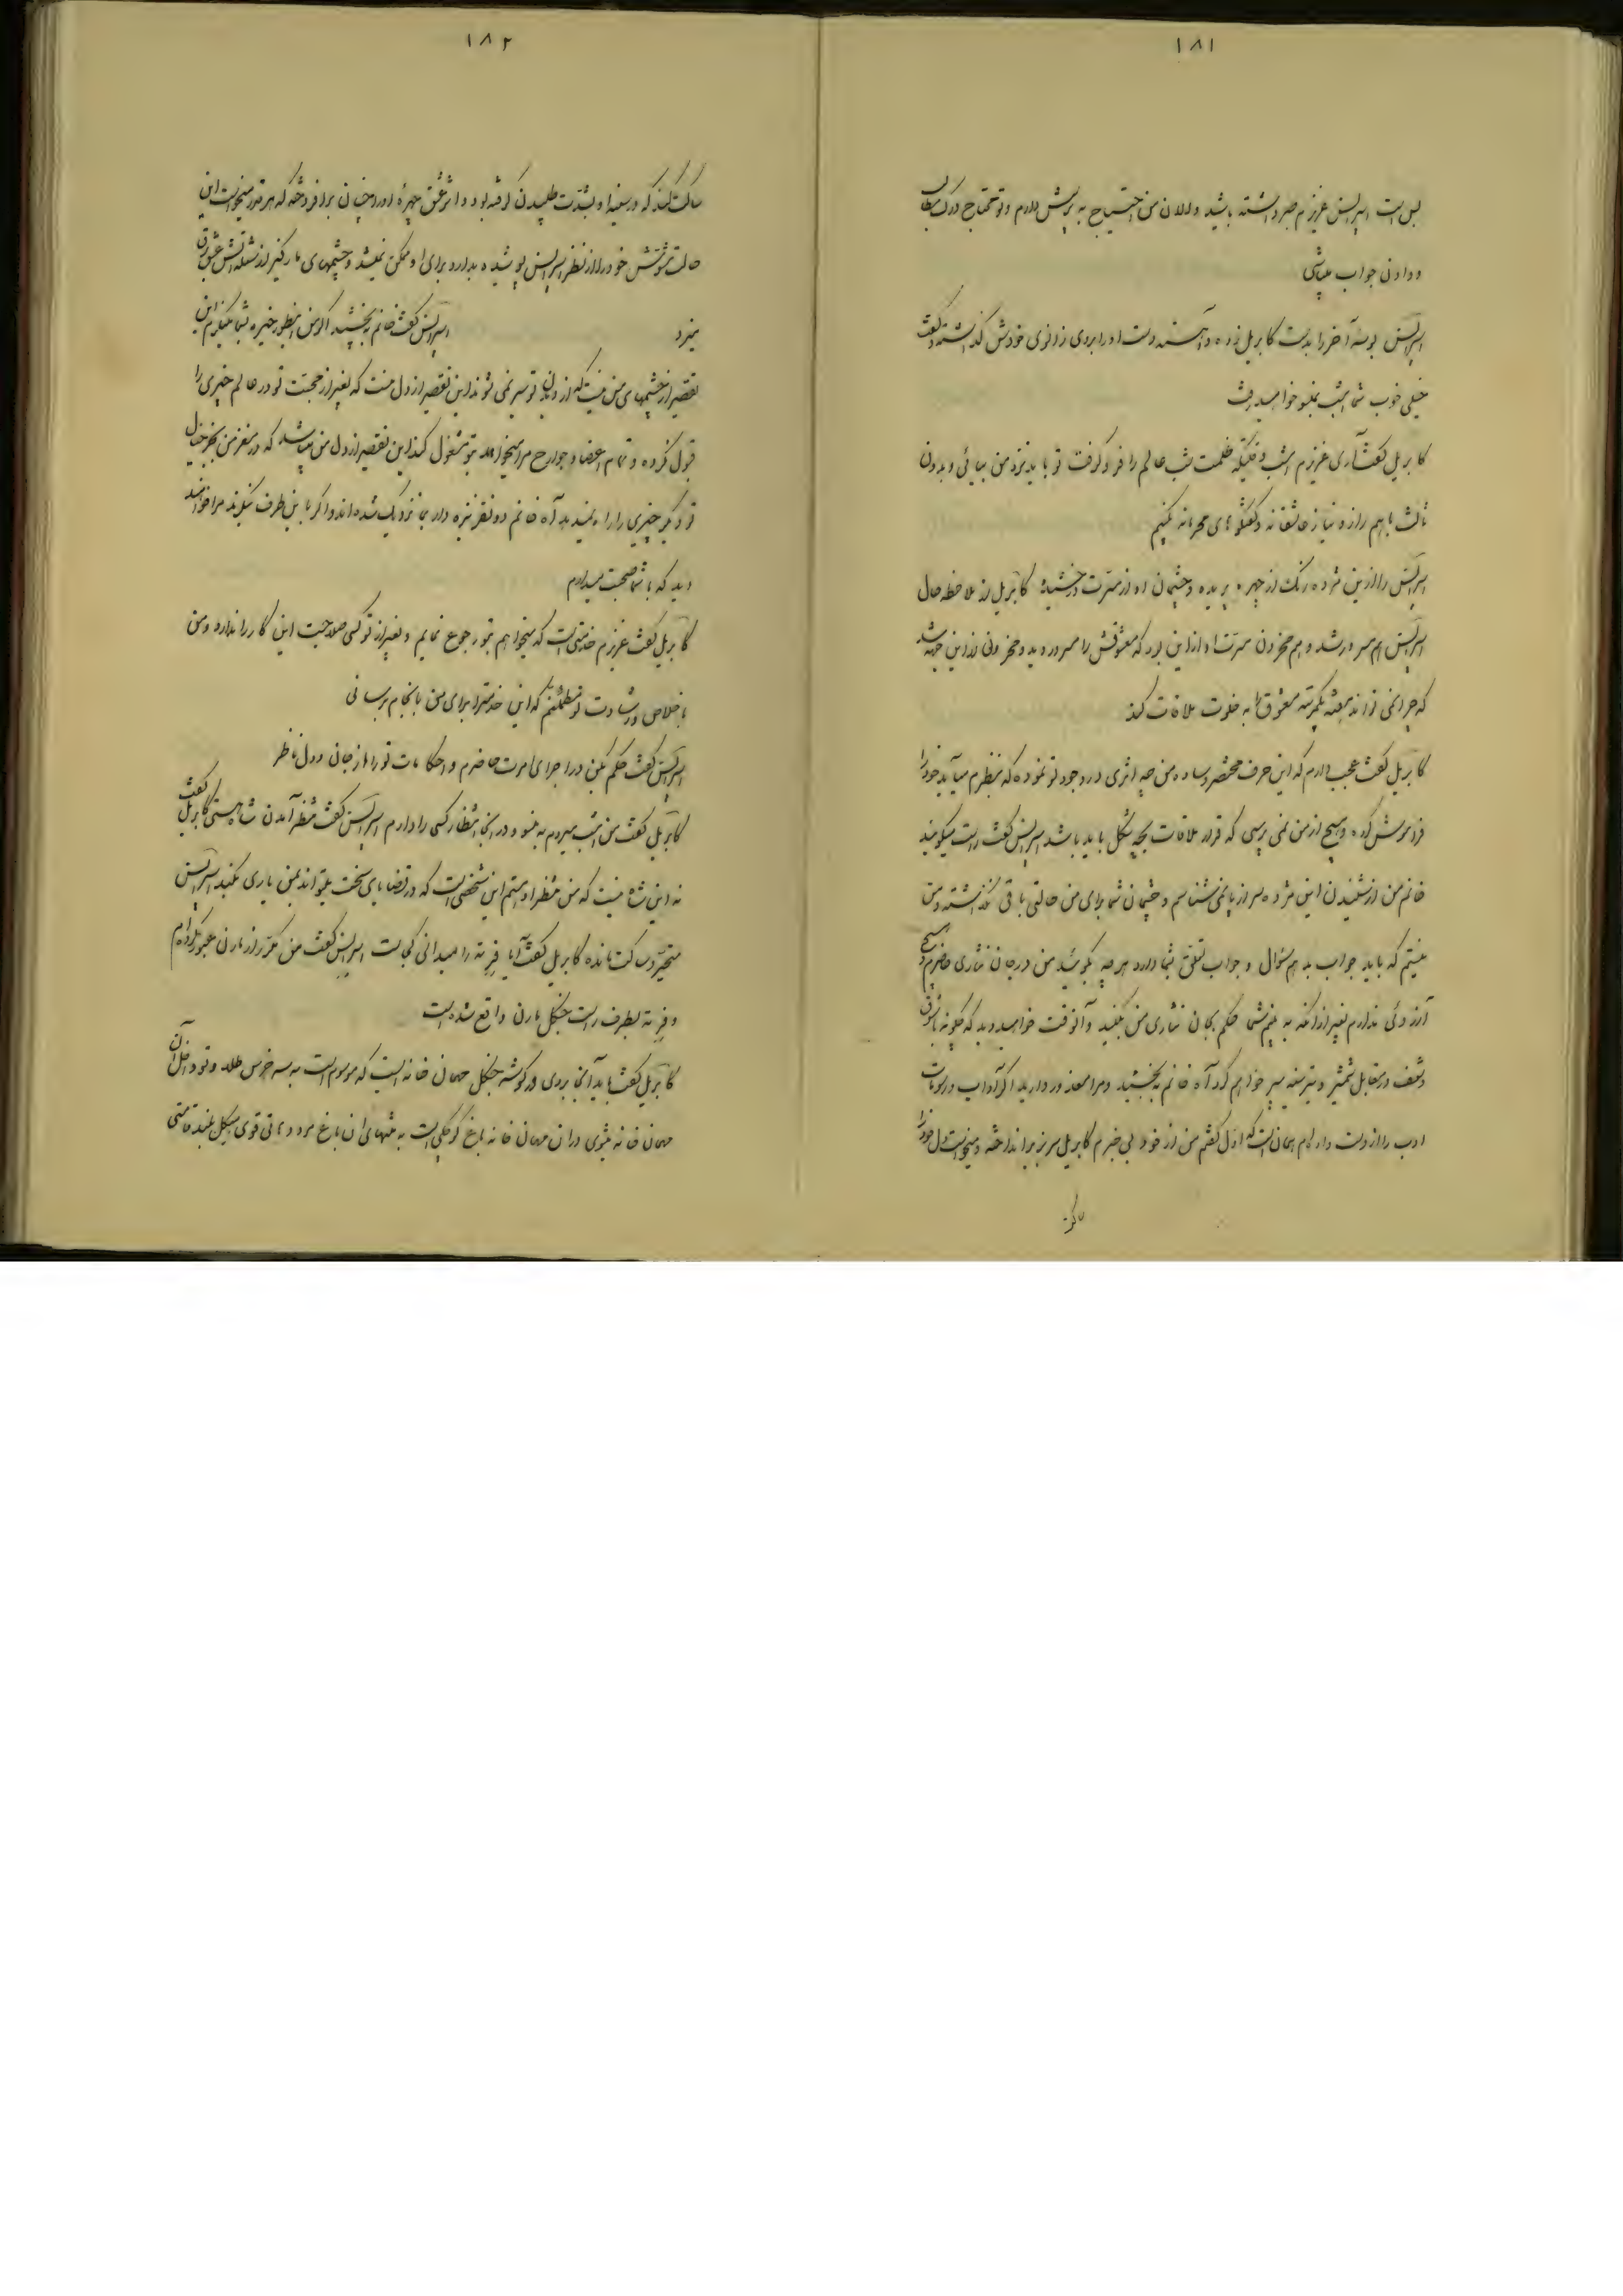 ۱۸۱
بس است اسپرانس عزیزم صبر داشته باشید والان من احتیاج به پرسش دارم و تو محتاج درک مطالب
و دادن جواب میباشی
اسپرانس بوسه آخر را بدست کابریل زده و آهسته دست او را بروی زانوی خودش گذاشته گفت
خیلی خوب شما امشب بملو خواهید رفت
کابریل گفت آری عزیزم امشب وقتیکه ظلمت شب عالم را فرو گرفت تو باید نزد من بیائی و بدون
ثالث با هم راز و نیاز عاشقانه و گفتگوهای محرمانه بکنیم
اسپرانس را از این مژده رنگ از چهره پریده و چشمان او از مسرت درخشید کابریل از ملاحظه حال
اسپرانس هم مسرور شد و هم محزون مسرت او از این بود که معشوقش را مسرور دید و محزونی از این جهة شد
که چرا نمی تواند هفته یکمرتبه معشوق را به خلوت ملاقات کند
کابریل گفت عجب دارم که این حرف مختصر و ساده من چه اثری در وجود تو نموده که بنظرم میآید خود را
فراموش کرده و هیچ از من نمی پرسی که قرار ملاقات بچه شکل باید باشد اسپرانس گفت راست میگوئید
خانم من از شنیدن این مژده سر از پا نمی شناسم و چشمان شما برای من حالتی باقی نگذاشته و من
نیستم که باید جواب بدهم سؤال و جواب تعلق بشما دارد هر چه بگوئید من در جان نثاری حاضرم و هیچ
آرزوئی ندارم بغیر از آنکه به بینم شما حکم بجان نثاری من بکنید و آنوقت خواهید دید که چگونه با شوق
و شعف در مقابل شمشیر و تیر سینه سپر خواهم کرد آه خانم به بخشید و مرا معذور دارید اگر آداب و رسومات
ادب را از دست داده ام همان است که اول گفتم من از خود بی خبرم کابریل سر بزیر انداخته و میخواست دل خود را
ساکت
۱۸۲
ساکت کند که در سینه او بشدت طپیدن گرفته بود و اثر عشق چهره او را چنان برافروخته که هر قدر میخواست این
حالت خودش را از نظر اسپرانس پوشیده بدارد برای او ممکن نمیشد و چشمهای مارکیز از شعله آتش عشق برق
میزد اسپرانس گفت خانم به بخشید اگر من اینطور خیره بشما مینگرم این
تقصیر از چشمهای من نیست که از دیدن تو سیر نمی شوند این تقصیر از دل منست که بغیر از محبت تو در عالم چیزی را
قبول نکرده و تمام اعضا و جوارح مرا میخواهد بتو مشغول کند این تقصیر از دل من میباشد که در مغز من بجز خیال
تو دیگر چیزی را راه نمیدهد آه خانم دو نفر نیزه دار بما نزدیک شده اند و اگر باین طرف بیایند مرا خواهند
دید که با شما صحبت میدارم
کابریل گفت عزیزم خدمتی است که میخواهم بتو رجوع نمایم و بغیر از تو کسی صلاحیت این کار را ندارد و من
باخلاص و رشادت تو مطمئنم که این خدمت را برای من بانجام برسانی
اسپرانس گفت حکم بکن در اجرای امرت حاضرم و احکامات تو را از جان و دل ناظر
کابریل گفت من امشب میروم به ملو و در آنجا انتظار کسی را دارم اسپرانس گفت منتظر آمدن شاه هستی کابریل گفت
نه این شاه نیست که من منتظر او هستم این شخصی است که در قضایای سخت میتواند بمن یاری بکند اسپرانس
متحیر و ساکت مانده کابریل گفت آیا فرته را میدانی کجاست اسپرانس گفت من مکرر از مارن عبور کرده ام
و فرته بطرف راست جنگل مارن واقع شده است
کابریل گفت باید آنجا بروی در گوشه جنگل مهمان خانه ایست که موسوم است به سه خرس طلا و تو داخل آن
مهمان خانه میشوی در آن مهمان خانه باغ کوچکی است به منتهای آن باغ مرد و مادی قوی هیکل بلند قامتی